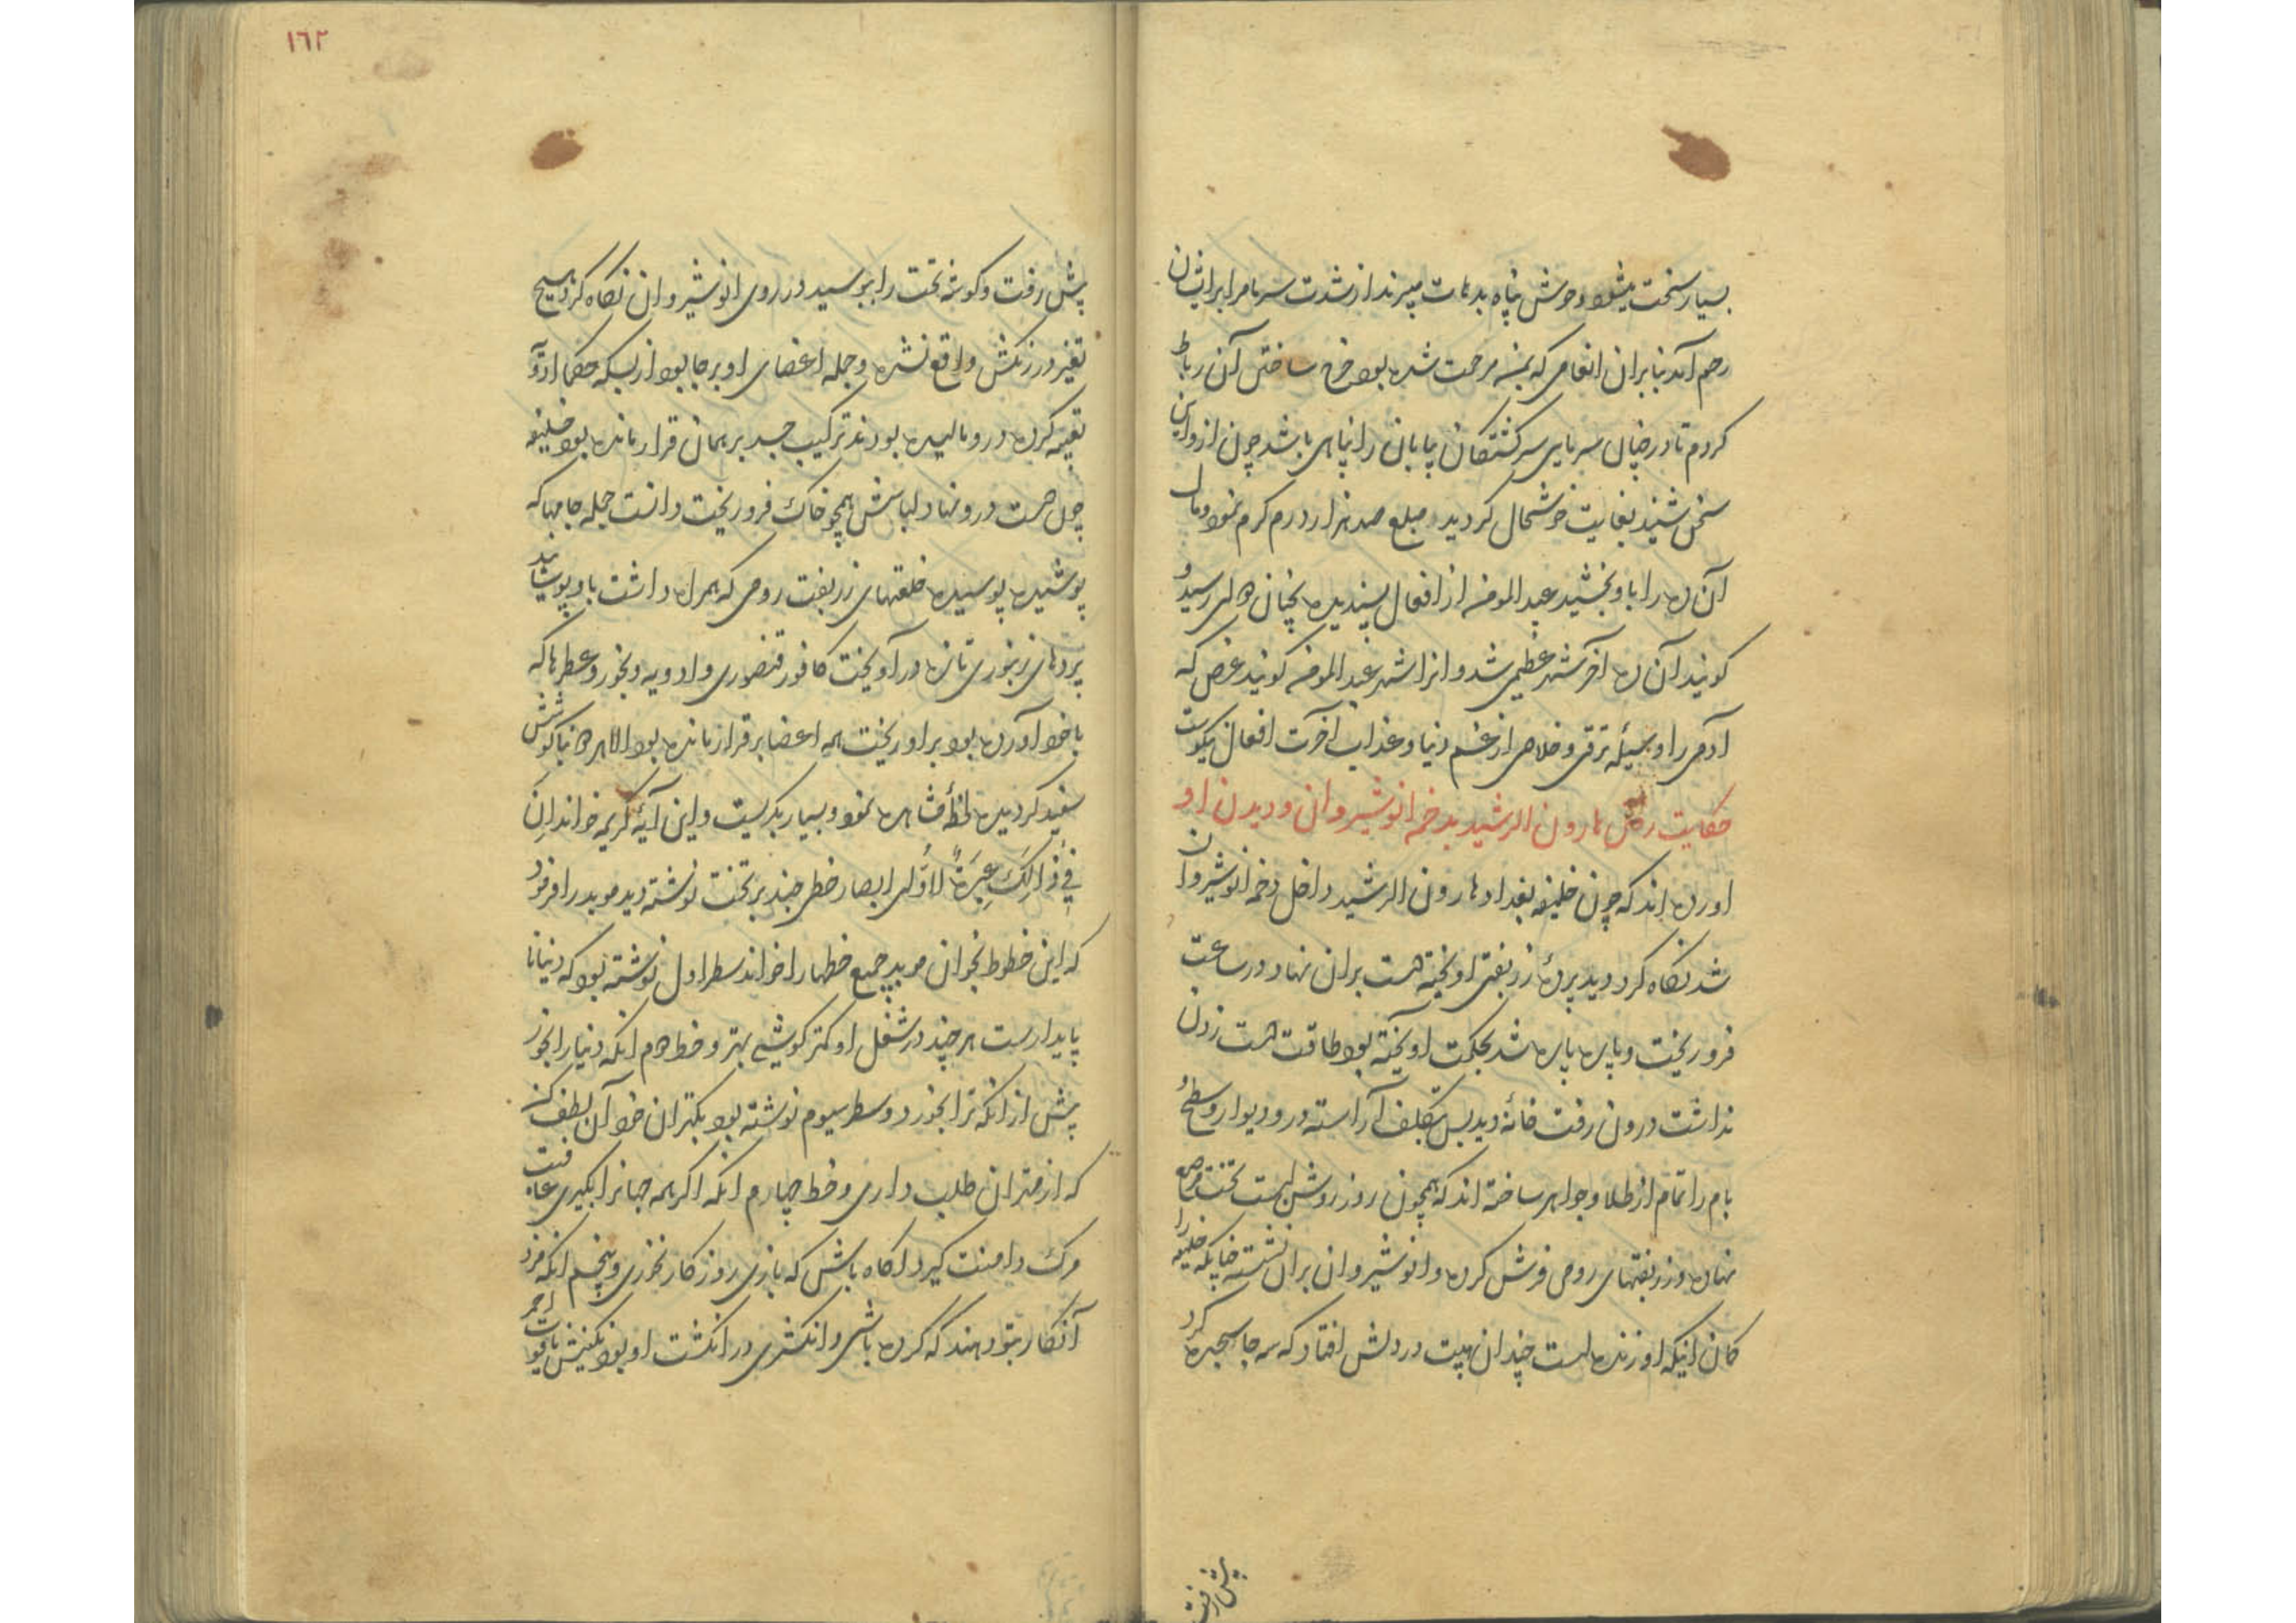 بسیار سخت میشود وحوش پناه بدهات میبرند از شدت سرما مرا برایشان
رحم آمد بنابران انعامی که بمن مرحمت شده بود خرج ساختن آن رباط
کردم تا در چنان سرمای سرکشتکان بیابان را پناهی باشد چون از وی این
سخن شنید بغایت خوشحال کردید و مبلغ صد هزار درم کرم نمود و مال
آن ده را باو بخشید عبد المومن از افعال پسندیده بچنان رسید و
کویند آن ده آخر شهر عظیمی شد و انرا شهر عبد المومن کویند غرض که
آدمی را وسیلهٔ ترقی و خلاصی از غم دنیا و عذاب آخرت افعال نیکوست
حکایت رفتن هارون الرشید بدخمه انوشیروان و دیدن او
اورده اند که چون خلیفه بغداد هارون الرشید داخل دخمه انوشیروان
شد نکاه کرد دید پردهٔ زربفتی اویخته دست بران نهاد در ساعت
فرو ریخت و پاره پاره شد بحکمت اویخته بود طاقت دست زدن
نداشت درون رفت خانهٔ دید بس بتکلف آراسته در و دیوار و سطح
بام را تمام از طلا و جواهر ساخته اند که همچون روز روشن است تخت مرصع
نهاده و زربفتهای رومی فرش کرده و انوشیروان بران نشسته چنانکه خلیفه را
کمان اینکه او زنده است چندان هیبت در دلش افتاد که سه جا سجده کرد
پیش رفت
١٦٢
پیش رفت و کوشه تخت را ببوسید در روی انوشیروان نکاه کرد هیچ
تغیر در رنکش واقع نشده و جمله اعضای او برجا بود از بسکه حکما ادویه
تعبیه کرده درو مالیده بودند ترکیب جسد بر همان قرار مانده بود خلیفه
چون دست درو نهاد لباسش همچو خاک فرو ریخت دانست جمله جامها که
پوشیده پوسیده خلعتهای زربفت رومی که همراه داشت باو پوشانید
پردهای زنبوری تازه در آویخت کافور قنصوری و ادویه و بخور و عطرها که
با خود آورده بود بر او ریخت همه اعضا برقرار مانده بود الا بناکوشش
سفید کردیده لحظهٔ مشاهده نمود و بسیار بکریست و این آیهٔ کریمه خواند اِنَ
فِی ذَالِکَ لَعِبرَةً لِاُولی ابصار خطی چند بر تخت نوشته دید موبد را فرمود
که این خطوط بخوان موبد جمیع خطها را خواند سطر اول نوشته بود که دنیا نا
پایدارست هر چند در شغل او کمتر کوشی بهتر و خط دوم انکه دنیا را بخور
پیش از انکه ترا بخورد و سطر سیوم نوشته بود بکهتران خود آن لطف کن
که از مهتران طلب داری و خط چهارم انکه اکر همه جهانرا بکیری عاقبت
مرک دامنت کیرد اکاه باش که بازی روزکار نخوری و پنجم انکه مزد
آنکار بتو دهند که کرده باشی و انکشتری در انکشت او بود نکینش یاقوت احمر